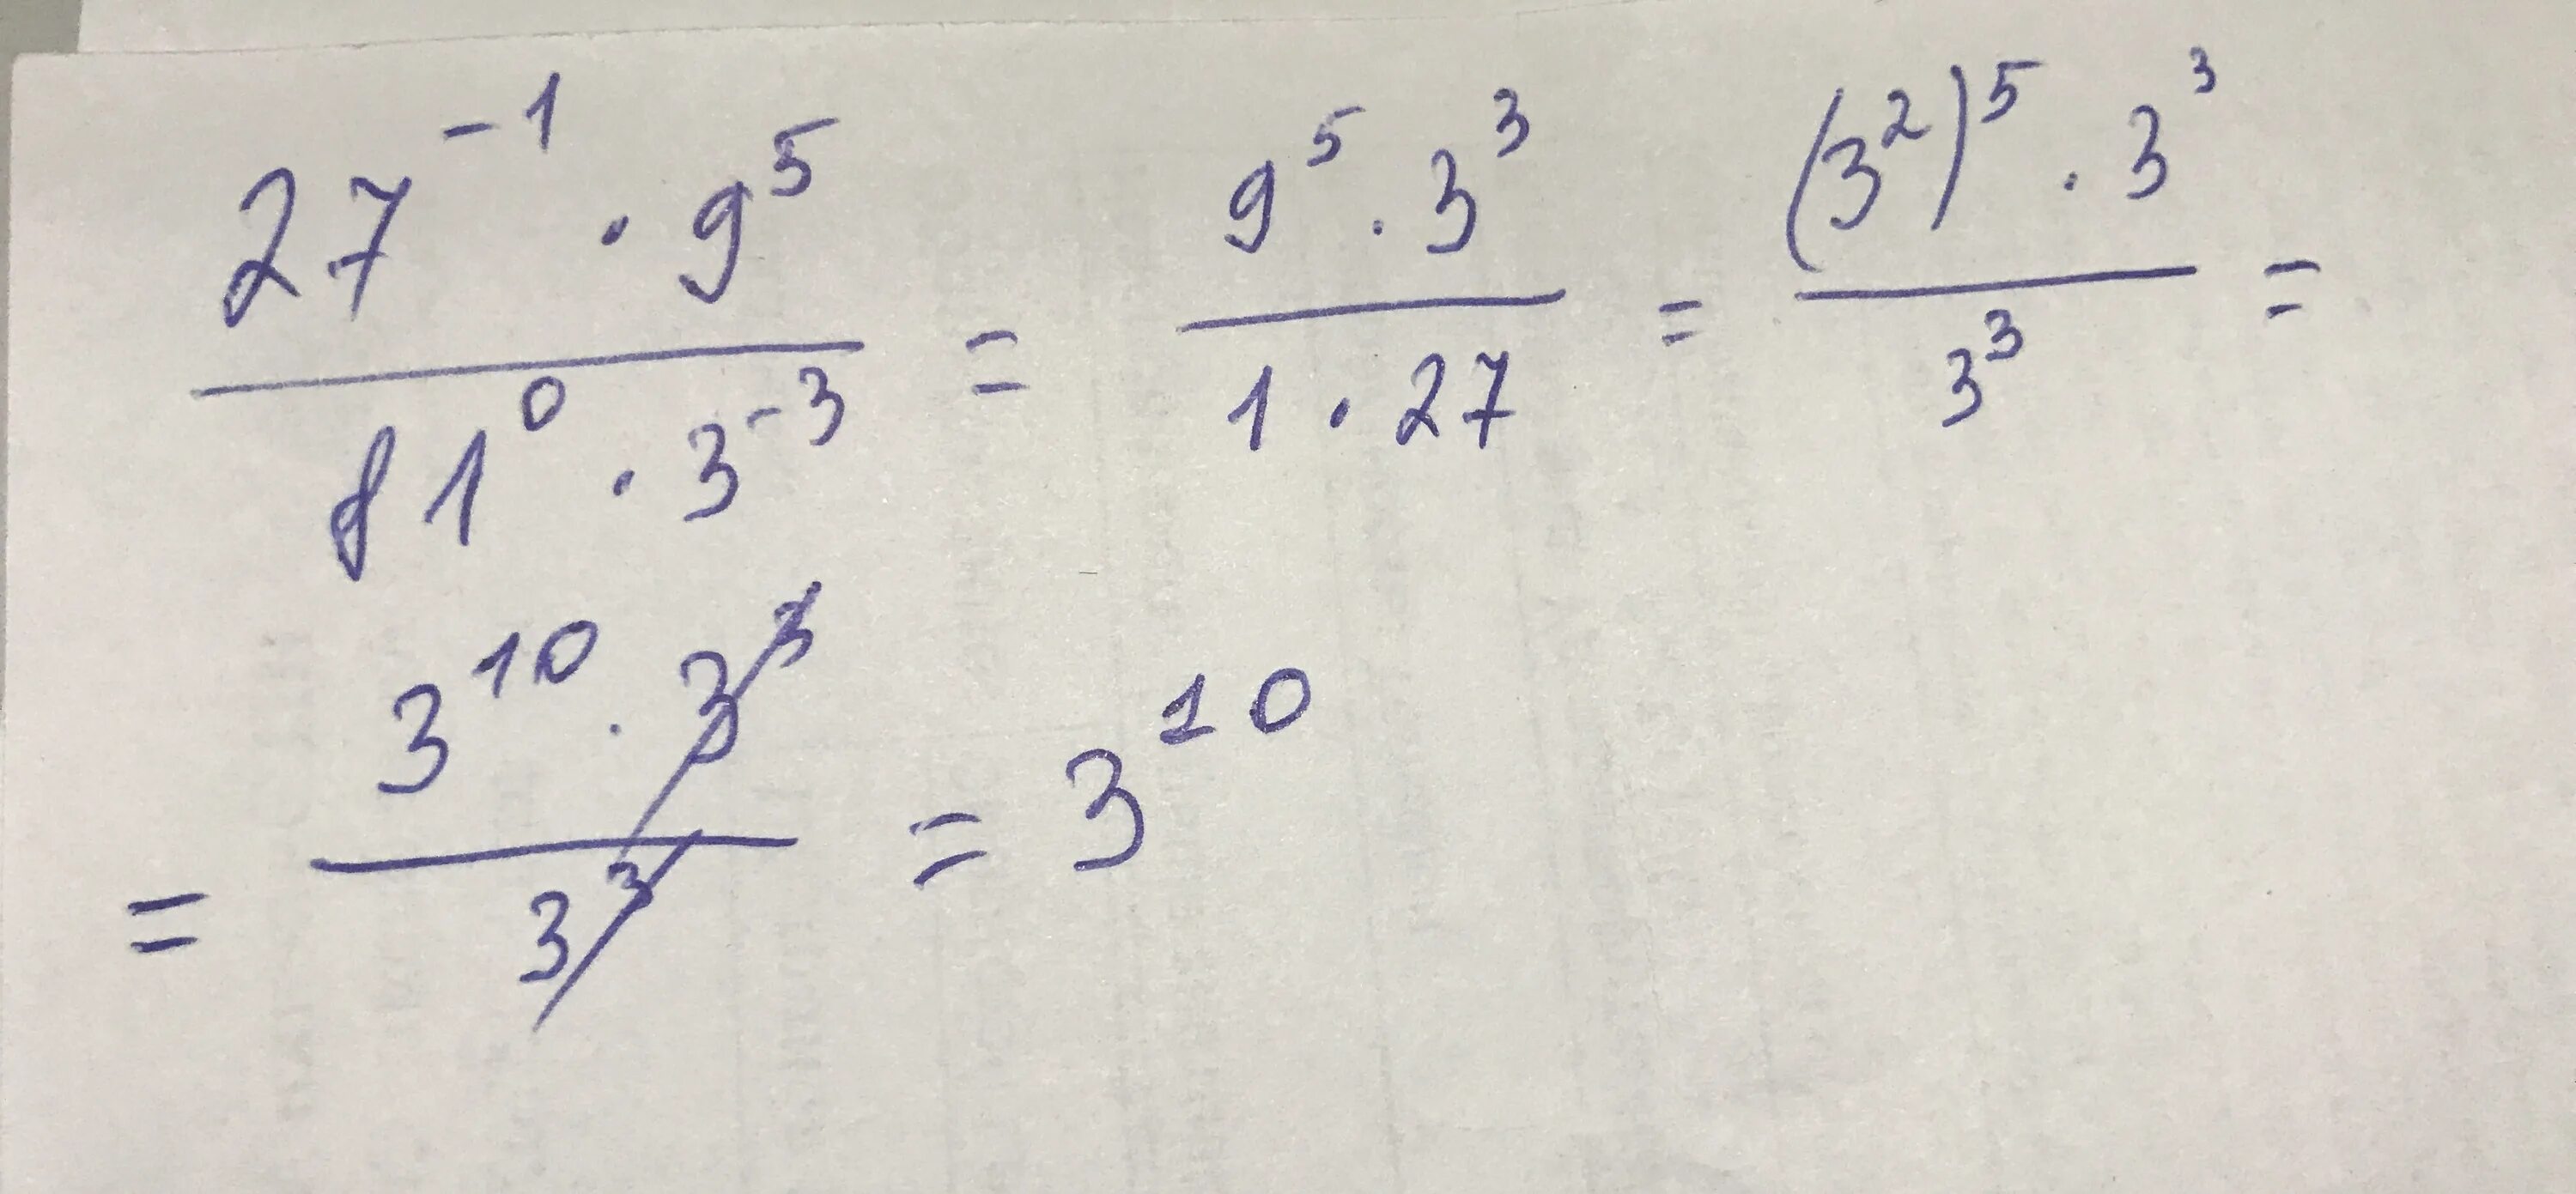 27⁻¹ · 9⁵ / 81⁰ · 3⁻³ = 9⁵ · 3³ / 1 · 27 = (3²)⁵ · 3³ / 3³ =
= 3¹⁰ · 3³ / 3³ = 3¹⁰